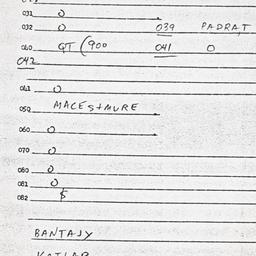 031 0
032 0 039 PADRAT
040 GT (900 041 0
042
041 0
050 MACES+MURE
060 0
070 0
080 0
081 0
082 $
BANTAJY